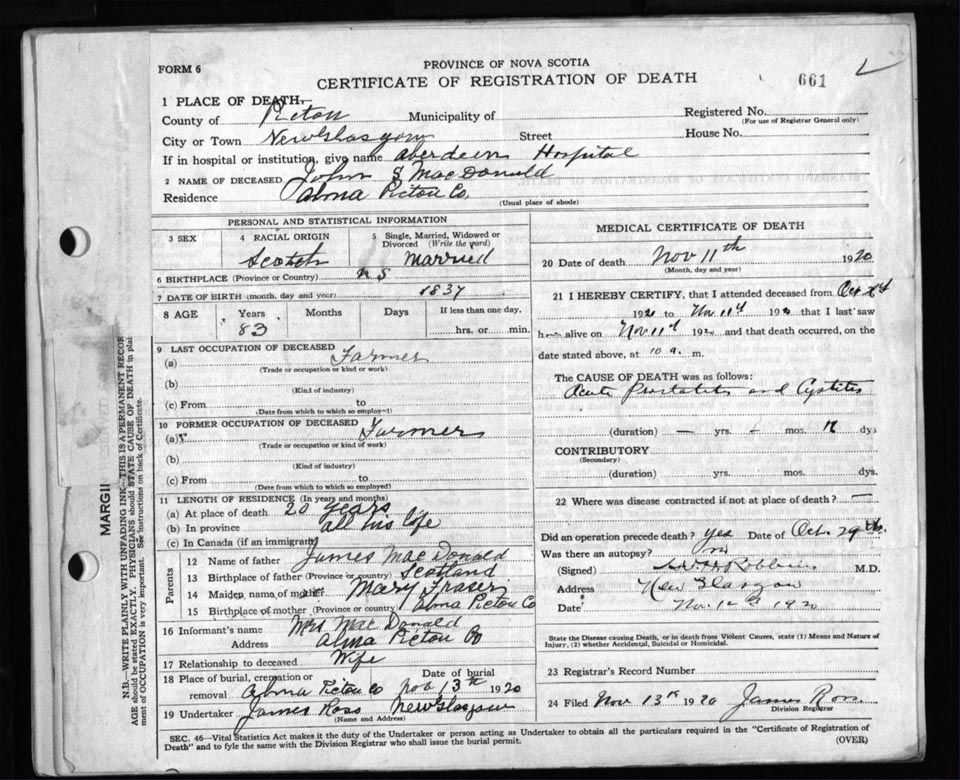 FORM 6
PROVINCE OF NOVA SCOTIA
CERTIFICATE OF REGISTRATION OF DEATH
661
1 PLACE OF DEATH,
County of Pictou Municipality of
Registered No.
(For use of Registrar General only)
City or Town New Glasgow Street House No.
If in hospital or institution, give name Aberdeen Hospital
2 NAME OF DECEASED John S MacDonald
Residence Alma Pictou Co.
(Usual place of abode)
PERSONAL AND STATISTICAL INFORMATION
3 SEX
4 RACIAL ORIGIN
Scotch
5 Single, Married, Widowed or Divorced (Write the word)
Married
6 BIRTHPLACE (Province or Country) N S
7 DATE OF BIRTH (month, day and year) 1837
8 AGE Years Months Days If less than one day,
83 hrs. or min.
9 LAST OCCUPATION OF DECEASED
(a) Farmer
(Trade or occupation or kind or work)
(b)
(Kind of industry)
(c) From to
(Date from which to which so employed)
10 FORMER OCCUPATION OF DECEASED
(a) Farmer
(Trade or occupation or kind of work)
(b)
(Kind of industry)
(c) From to
(Date from which to which so employed)
11 LENGTH OF RESIDENCE (In years and months)
(a) At place of death 20 years
(b) In province all his life
(c) In Canada (if an immigrant)
Parents
12 Name of father James MacDonald
13 Birthplace of father (Province or country) Scotland
14 Maiden name of mother Mary Fraser
15 Birthplace of mother (Province or country) Alma Pictou Co
16 Informant's name Mrs MacDonald
Address Alma Pictou Co
17 Relationship to deceased Wife
18 Place of burial, cremation or removal Alma Pictou Co
Date of burial Nov 13th 1920
19 Undertaker James Ross New Glasgow
(Name and Address)
MEDICAL CERTIFICATE OF DEATH
20 Date of death Nov 11th 1920
(Month, day and year)
21 I HEREBY CERTIFY, that I attended deceased from Oct
1920 to Nov 11th 1920 that I last saw
h alive on Nov 11th 1920 and that death occurred, on the
date stated above, at 10 a. m.
The CAUSE OF DEATH was as follows:
Acute Prostatitis and Cystitis
(duration) — yrs. - mos. dys
CONTRIBUTORY
(Secondary)
(duration) yrs. mos. dys.
22 Where was disease contracted if not at place of death? —
Did an operation precede death? yes Date of Oct. 29th.
Was there an autopsy? no
(Signed) M.D.
Address New Glasgow
Date Nov. 12th 1920
State the Disease causing Death, or in death from Violent Causes, state (1) Means and Nature of
Injury, (2) whether Accidental, Suicidal or Homicidal.
23 Registrar's Record Number
24 Filed Nov 13th 1920 James Ross
Division Registrar
SEC. 46—Vital Statistics Act makes it the duty of the Undertaker or person acting as Undertaker to obtain all the particulars required in the "Certificate of Registration of
Death" and to fyle the same with the Division Registrar who shall issue the burial permit.
(OVER)
MARGI
N.B.—WRITE PLAINLY WITH UNFADING INK—THIS IS A PERMANENT RECOR
AGE should be stated EXACTLY. PHYSICIANS should STATE CAUSE OF DEATH in plai
ment of OCCUPATION is very important. See instructions on back of Certificate.